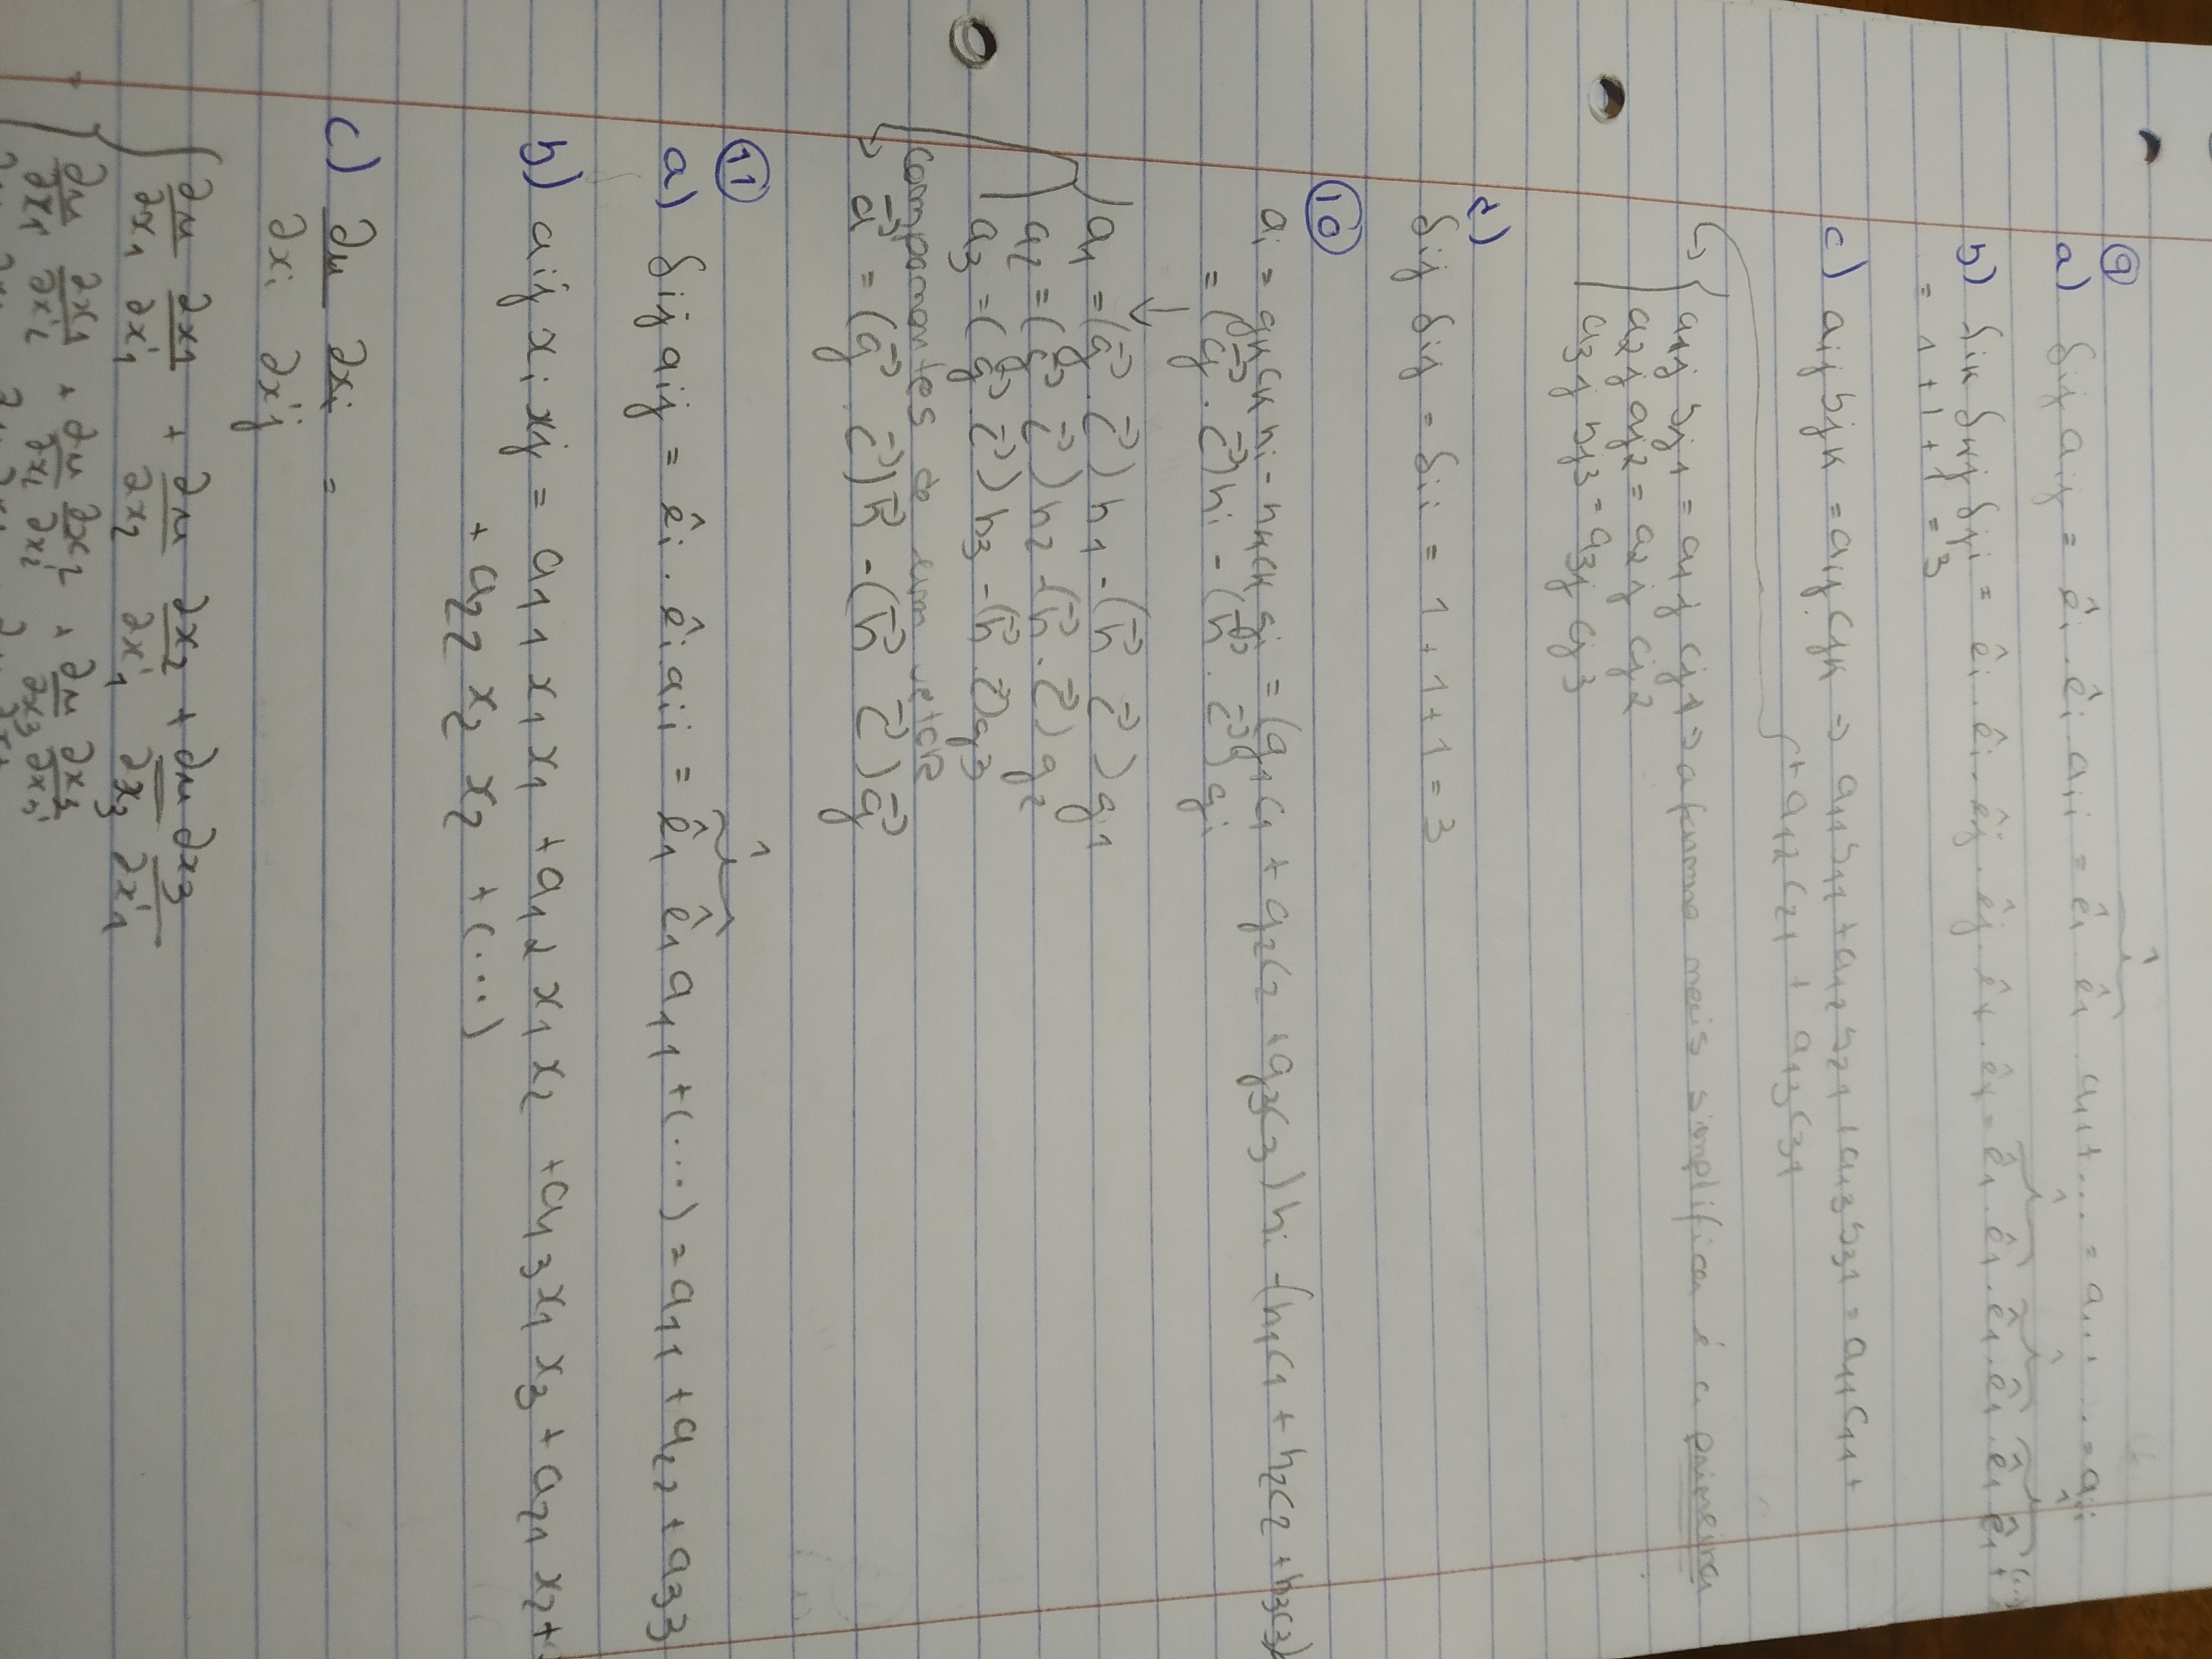 9
a) δij aij = êi . êi aii = ê1 ê1 a11 + ... = aii
1
b) δik δkj δji = êi . êi . êj . êj . êk . êk = ê1 . ê1 . ê1 . ê1 . ê1 ê1 + (...)
= 1 + 1 + 1 = 3
c) aij bjk = aij cjk => a11 b11 + a12 b21 + a13 b31 = a11 c11 +
+ a12 c21 + a13 c31
a1j bj1 = a1j cj1 => a forma mais simplifica é a primeira
a2j aj2 = a2j cj2
a3j bj3 = a3j cj3
δij δij = δii = 1 + 1 + 1 = 3
10
ai = gk ck hi - hk ck gi = (g1c1 + g2c2 + g3c3) hi - (h1c1 + h2c2 + h3c3)
= (g⃗ . c⃗) hi - (h⃗ . c⃗) gi
↓
a1 = (g⃗ . c⃗) h1 - (h⃗ c⃗) g1
a2 = (g⃗ c⃗) h2 - (h⃗ . c⃗) g2
a3 = (g⃗ c⃗) h3 - (h⃗ . c⃗) g3
componentes de um vetor
→ a⃗ = (g⃗ . c⃗) h⃗ - (h⃗ c⃗) g⃗
11
1
a) δij aij = êi . êi aii = ê1 ê1 a11 + (...) = a11 + a22 + a33
b) aij xi xj = a11 x1 x1 + a12 x1 x2 + a13 x1 x3 + a21 x2 +
+ a22 x2 x2 + (...)
c) ∂u/∂xi ∂xi/∂x'j =
∂u/∂x1 ∂x1/∂x'1 + ∂u/∂x2 ∂x2/∂x'1 + ∂u/∂x3 ∂x3/∂x'1
∂u/∂x1 ∂x1/∂x'2 + ∂u/∂x2 ∂x2/∂x'2 + ∂u/∂x3 ∂x3